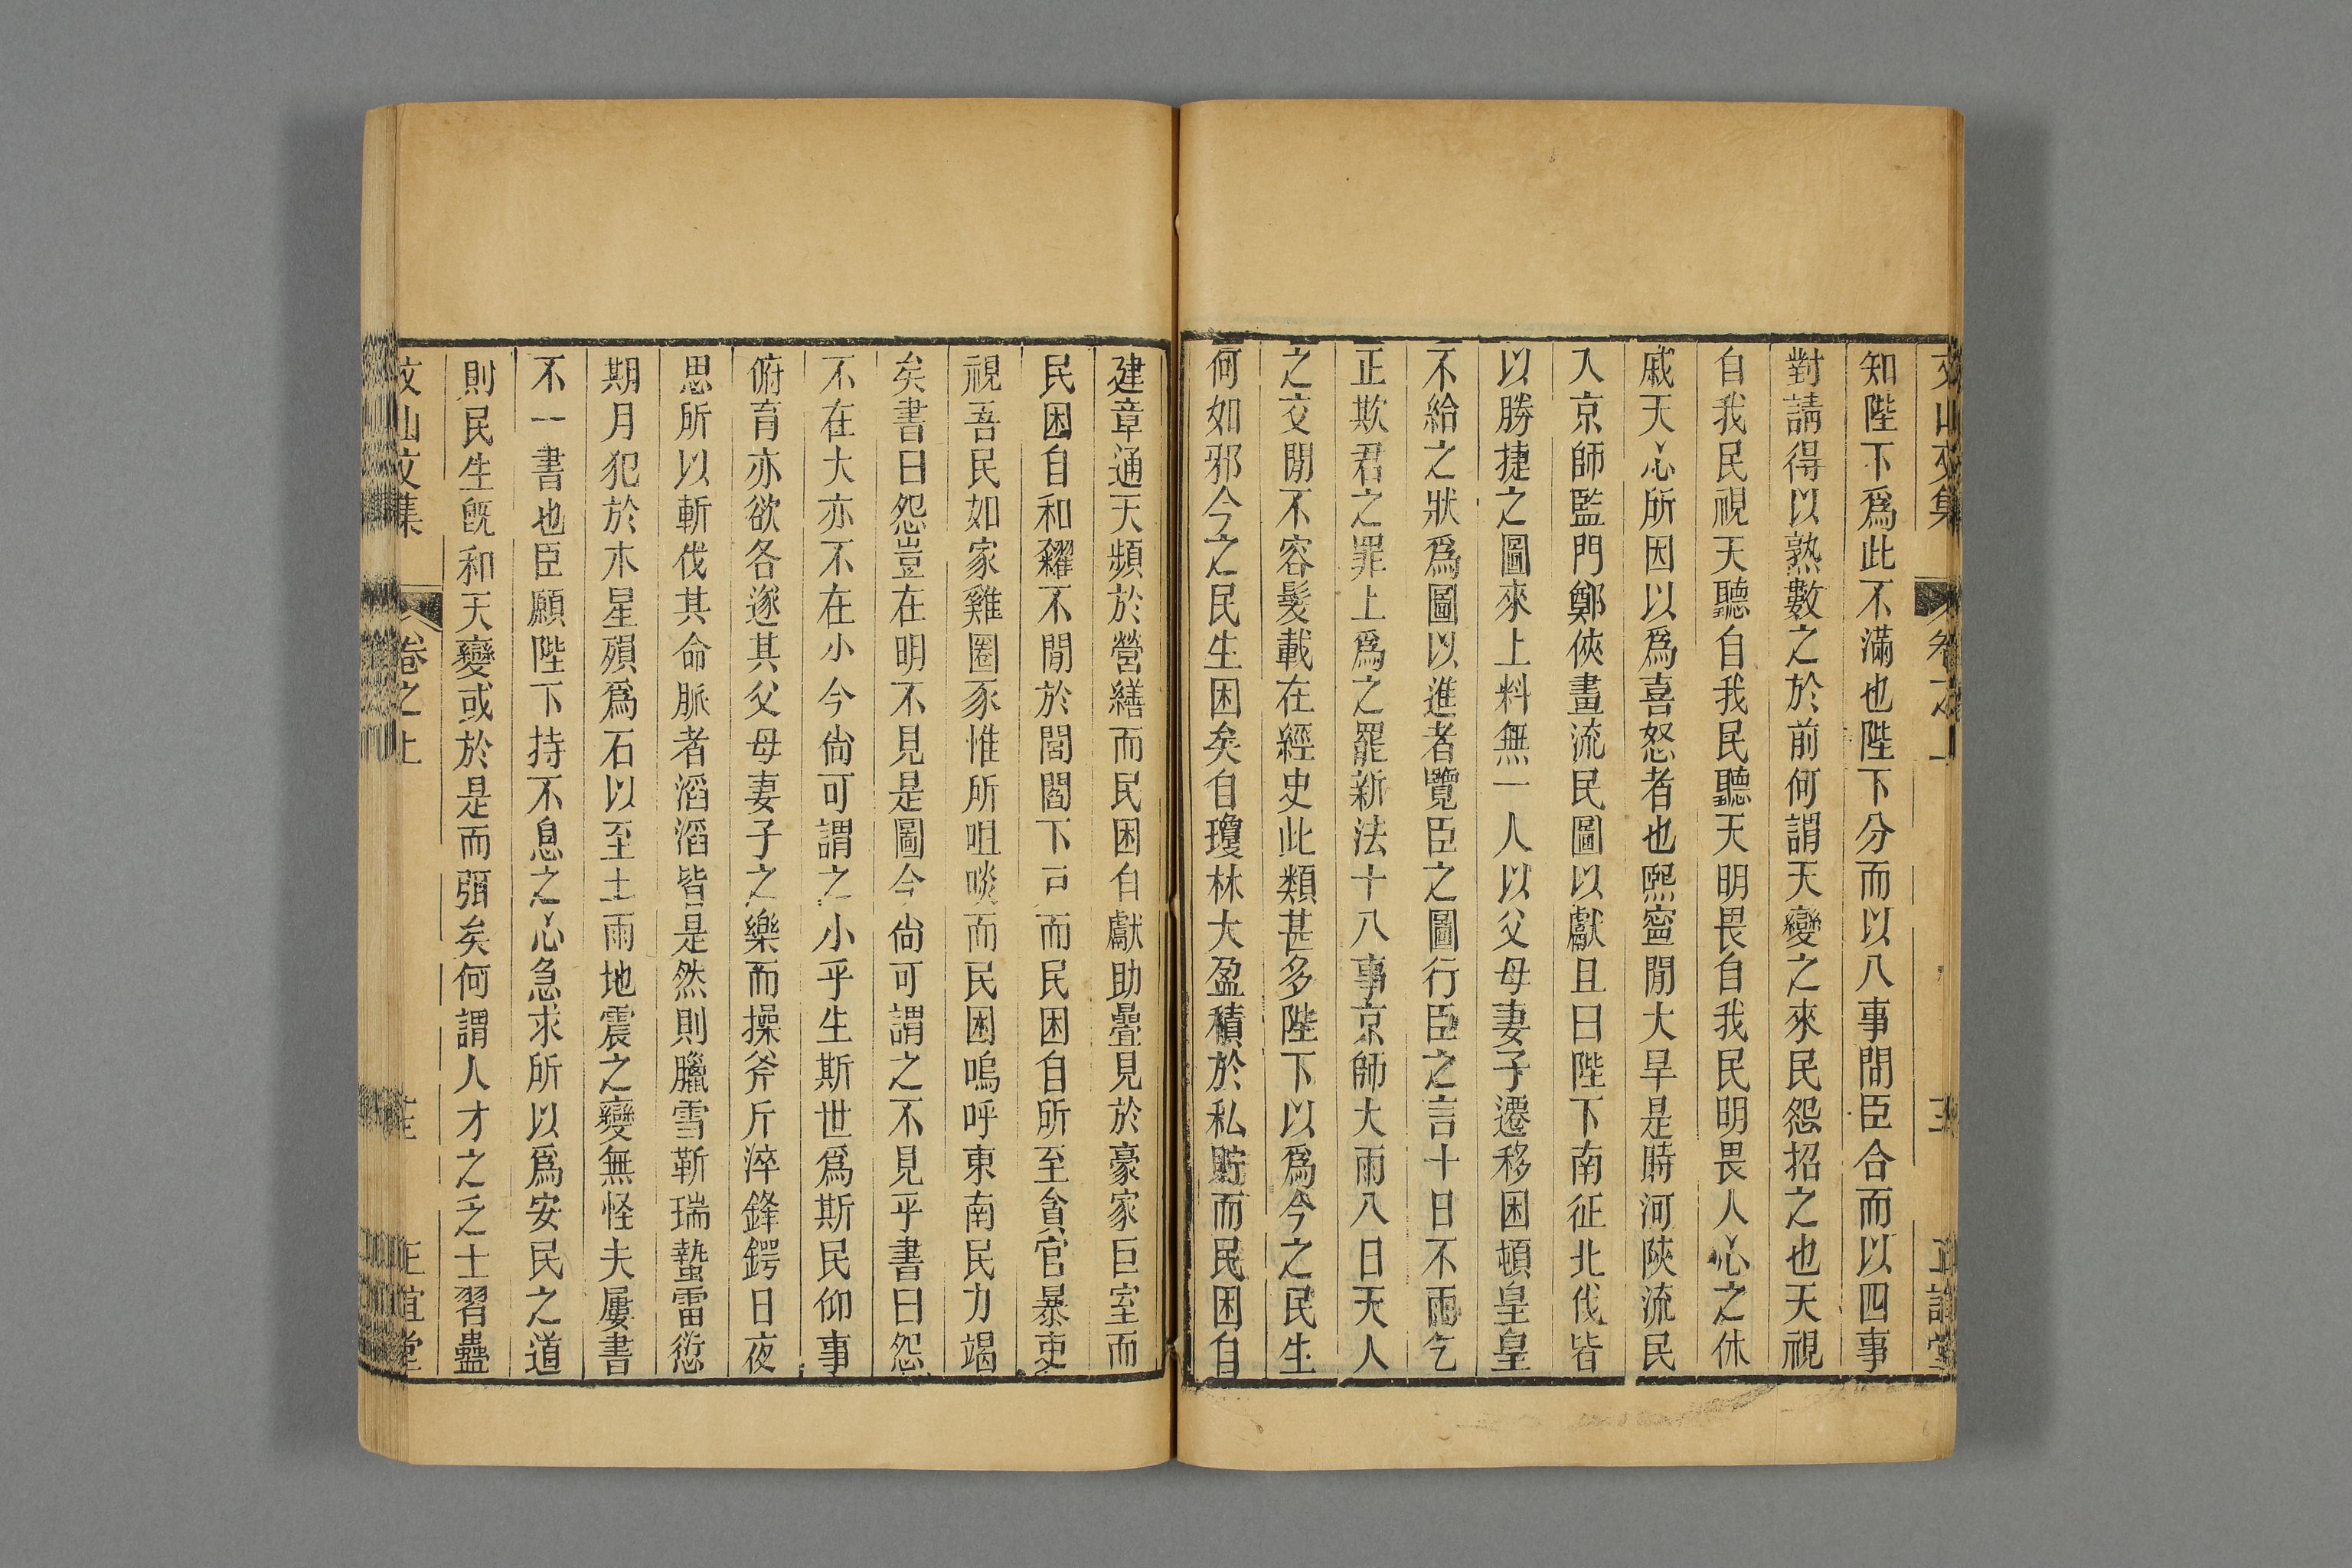 文山文集 卷之上
知陛下爲此不滿也陛下分而以八事問臣合而以四事
對請得以熟數之於前何謂天變之來民怨招之也天視
自我民視天聽自我民聽天明畏自我民明畏人心之休
戚天心所因以爲喜怒者也熙寧閒大旱是時河陝流民
入京師監門鄭俠畫流民圖以獻且曰陛下南征北伐皆
以勝捷之圖來上料無一人以父母妻子遷移困頓皇皇
不給之狀爲圖以進者覽臣之圖行臣之言十日不雨乞
正欺君之罪上爲之罷新法十八事京師大雨八日天人
之交閒不容髮載在經史此類甚多陛下以爲今之民生
何如邪今之民生困矣自瓊林大盈積於私貯而民困自
建章通天頻於營繕而民困自獻助疊見於豪家巨室而
民困自和糴不閒於閭閻下戸而民困自所至貪官暴吏
視吾民如家雞圈豕惟所咀啖而民困嗚呼東南民力竭
矣書曰怨豈在明不見是圖今尙可謂之不見乎書曰怨
不在大亦不在小今尙可謂之小乎生斯世爲斯民仰事
俯育亦欲各遂其父母妻子之樂而操斧斤淬鋒鍔日夜
思所以斬伐其命脈者滔滔皆是然則臘雪靳瑞蟄雷愆
期月犯於木星殞爲石以至土雨地震之變無怪夫屢書
不一書也臣願陛下持不息之心急求所以爲安民之道
則民生旣和天變或於是而弭矣何謂人才之乏士習蠱
文山文集 卷之上 正誼堂